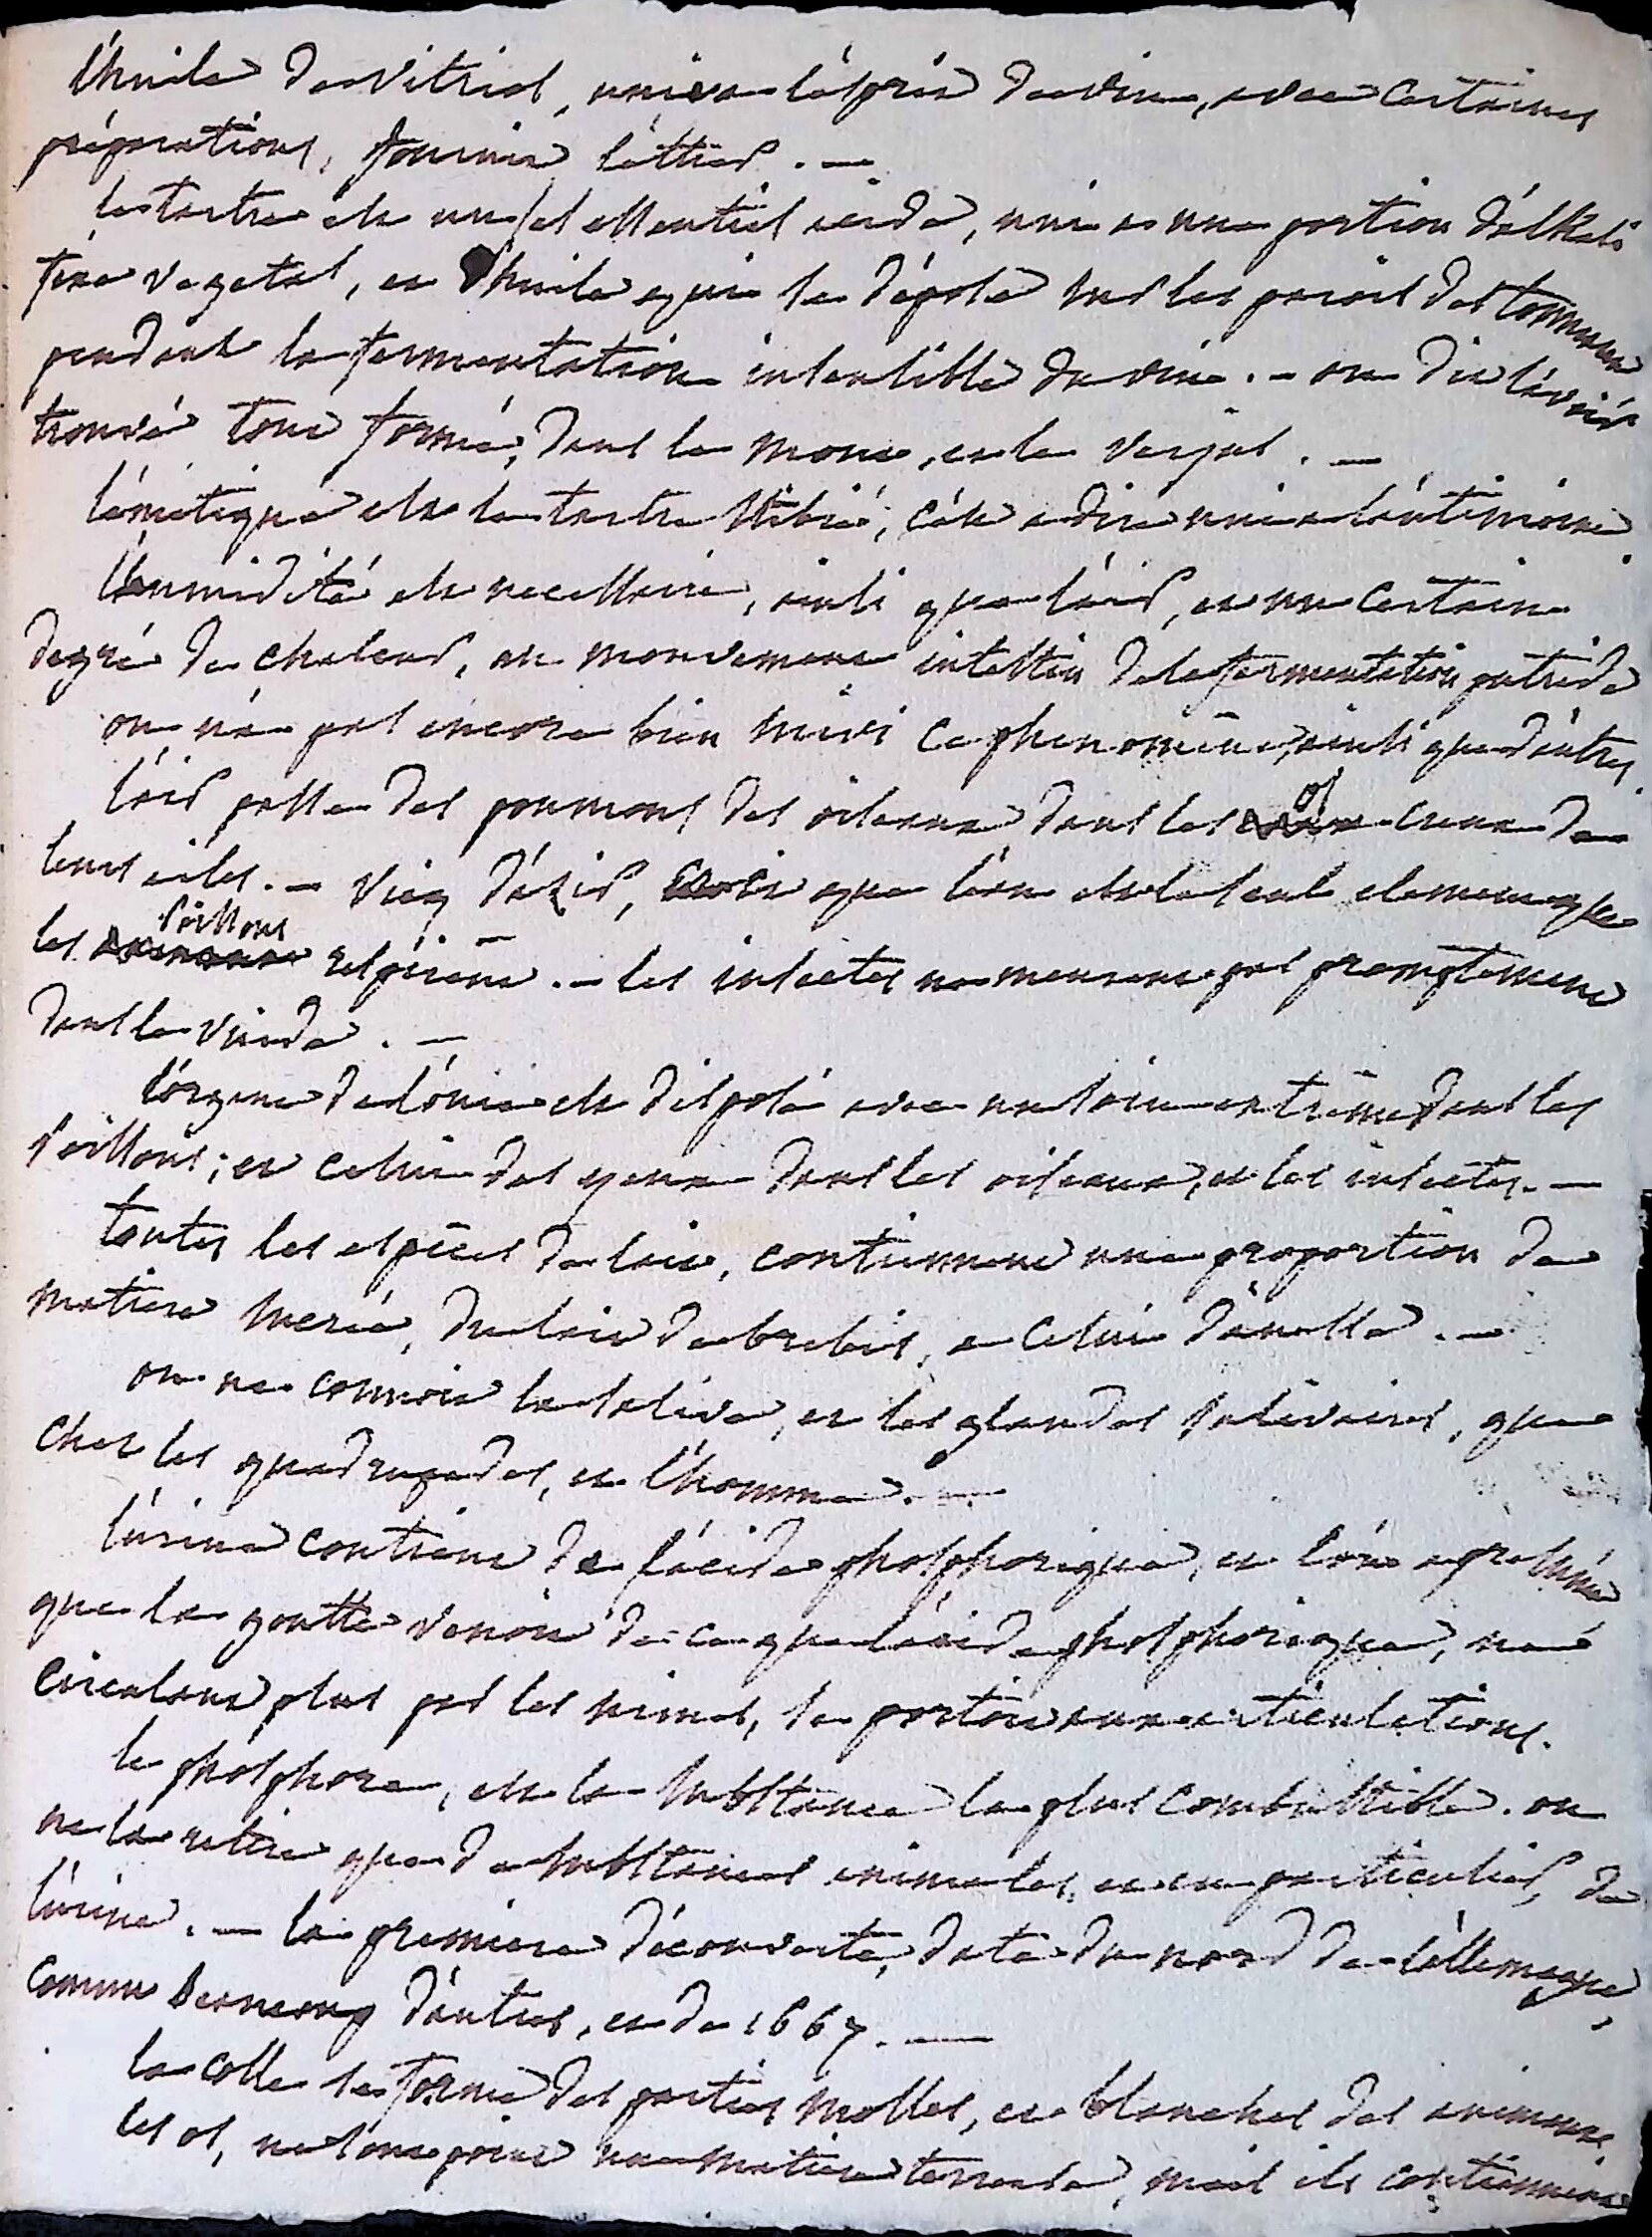 l'huile de vitriol, unie a l'esprit de vin, avec certaines
préparations, fournit l'éther. —
le tartre est un sel essentiel acide, uni a une portion d'alkali
fixe vegetal, et d'huile qui se dépose sur les parois des tonneaux
pendant la fermentation insensible du vin. — on dit l'avoir
trouvé tout formé, dans le mout, et le verjus. —
l'émétique est le tartre stibié, c'est a dire uni a l'antimoine
l'humidité est necessaire, ainsi que l'air, et un certain
degré de chaleur, au mouvement intestin de la fermentation putride
on n'a pas encore bien suivi ce phenomène, ainsi que d'autres.
l'air passe des poumons des oiseaux dans les os creux de
leurs ailes. — vicq d'azir, croit que l'eau est le seul element que
les poissons respirent. — les insectes ne meurent pas promptement
dans le vuide. —
l'organe de l'ouie est disposé avec un soin extrême dans les
poissons; et celui des yeux dans les oiseaux, et les insectes. —
toutes les espèces de lait, contiennent une proportion de
matiere sucrée, du lait de brebis, a celui d'anesse. —
on ne connoit la salive, et les glandes salivaires, que
chez les quadrupedes, et l'homme. —
l'urine contient de l'acide phosphorique, et l'on a présumé
que la goutte venoit de ce que l'acide phosphorique, ne
circulant plus par les urines, se portoit aux articulations.
le phosphore, est la substance la plus combustible. on
ne la retire que de substances animales, et en particulier, de
l'urine. — la premiere découverte, date du nord de l'allemagne,
comme beaucoup d'autres, et de 1667. —
la colle se forme des parties molles, et blanches des animaux
les os, ne sont point une matiere terreuse, mais ils contiennent